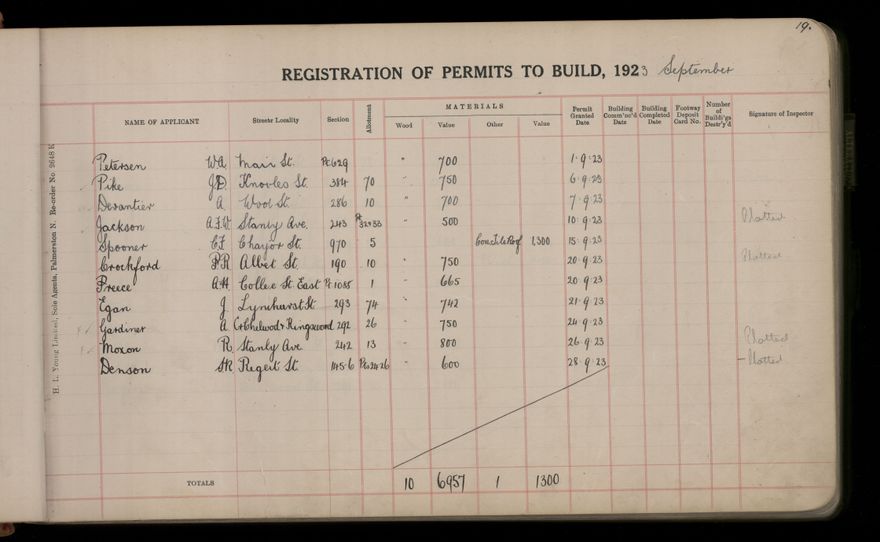 19.
REGISTRATION OF PERMITS TO BUILD, 1923 September
NAME OF APPLICANT Streetr Locality Section Allotment MATERIALS Wood Value Other Value Permit Granted Date Building Comm'nc'd Date Building Completed Date Footway Deposit Card No. Number of Buildi'gs Destr'y'd Signature of Inspector
Petersen W.A. Main St. Pt 629 " 700 1.9.23
Pike J.D. Knowles St. 384 70 " 750 6.9.23
Devantier A Wood St. 286 10 " 700 7.9.23
Jackson A.F.W. Stanly Ave. 243 Pt 32+33 " 500 10.9.23 Plotted
Spooner C.F. Chayor St. 970 5 Con Tile Roof 1,300 15.9.23
Crockford P.R. Albert St. 190 10 " 750 20.9.23 Plotted
Preece A.H. College St. East Pt 1085 1 " 665 20.9.23
Egan J. Lyndhurst St. 293 74 " 742 21.9.23
Gardiner A Cr Chelwood & Ringswood 292 26 " 750 24.9.23
Moxon R. Stanly Ave. 242 13 " 800 26.9.23 Plotted
Denson Regent St. 145-6 Pts 24 26 " 600 28.9.23 Plotted
TOTALS 10 6957 1 1300
H. L. Young Limited, Sole Agents, Palmerston N. Re-order No. 9648 K